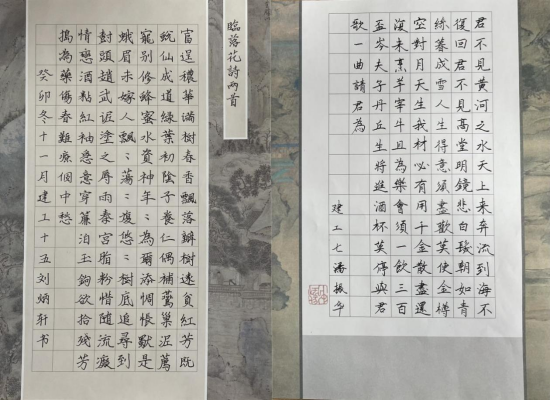 君不見黃河之水天上來奔流到海不
復回君不見高堂明鏡悲白髮朝如青
絲暮成雪人生得意須盡歡莫使金樽
空對月天生我材必有用千金散盡還
復來烹羊宰牛且為樂會須一飲三百
盃岑夫子丹丘生將進酒杯莫停與君
歌一曲請君為
建工七潘振华
臨落花詩兩首
富逞穠華滿樹春香飄落瓣樹還貧紅芳既
蛻仙成道綠葉初陰子養仁偶補鶯巢泥薦
寵別修蜂蜜水資神年〻為爾添惆悵獃是
蛾眉未嫁人飄〻蕩〻復悠〻樹底追尋到
封頭趙武泥塗之辱雨春宮脂粉惜隨流癡
情戀酒粘紅袖急意穿簾泊玉鉤欲拾殘芳
搗為藥傷春難療個中愁
癸卯冬十一月建工十五刘炳轩书